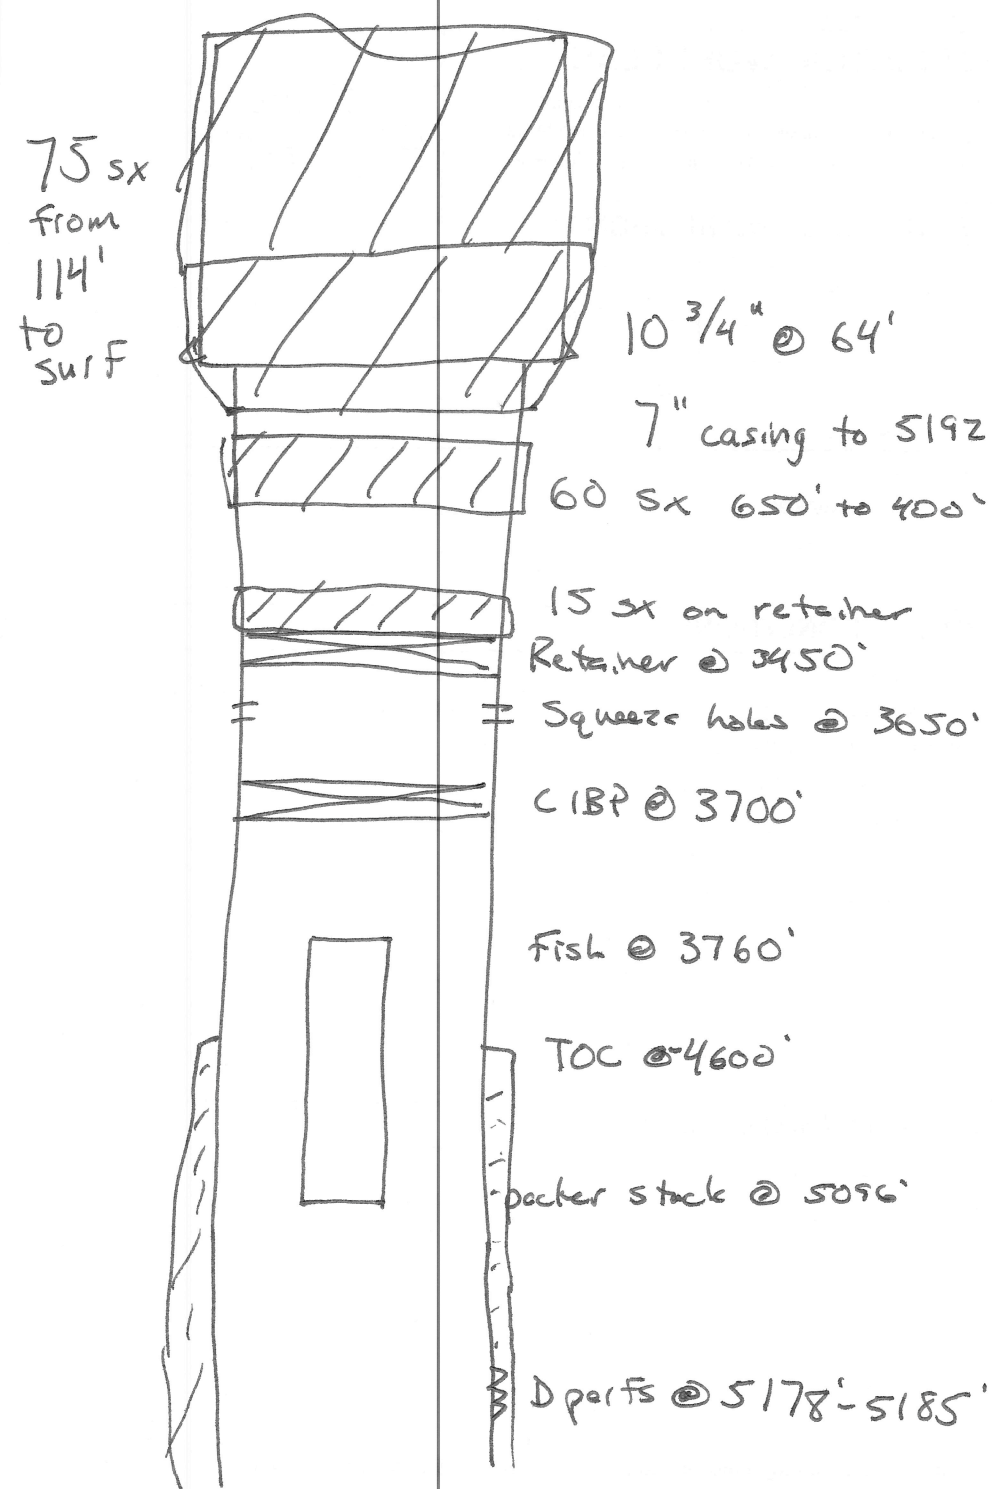 75 sx
from
114'
to
surf
10 3/4" @ 64'
7" casing to 5192
60 sx 650' to 400'
15 sx on retainer
Retainer @ 3450'
Squeeze holes @ 3650'
CIBP @ 3700'
Fish @ 3760'
TOC @ 4600'
packer stuck @ 5096'
D perfs @ 5178'-5185'